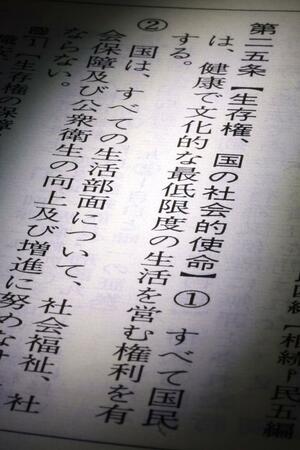 第二五条【生存権、国の社会的使命】① すべて国民
は、健康で文化的な最低限度の生活を営む権利を有
する。
② 国は、すべての生活部面について、社会福祉、社
会保障及び公衆衛生の向上及び増進に努めな
ならない。
【生存権の保障